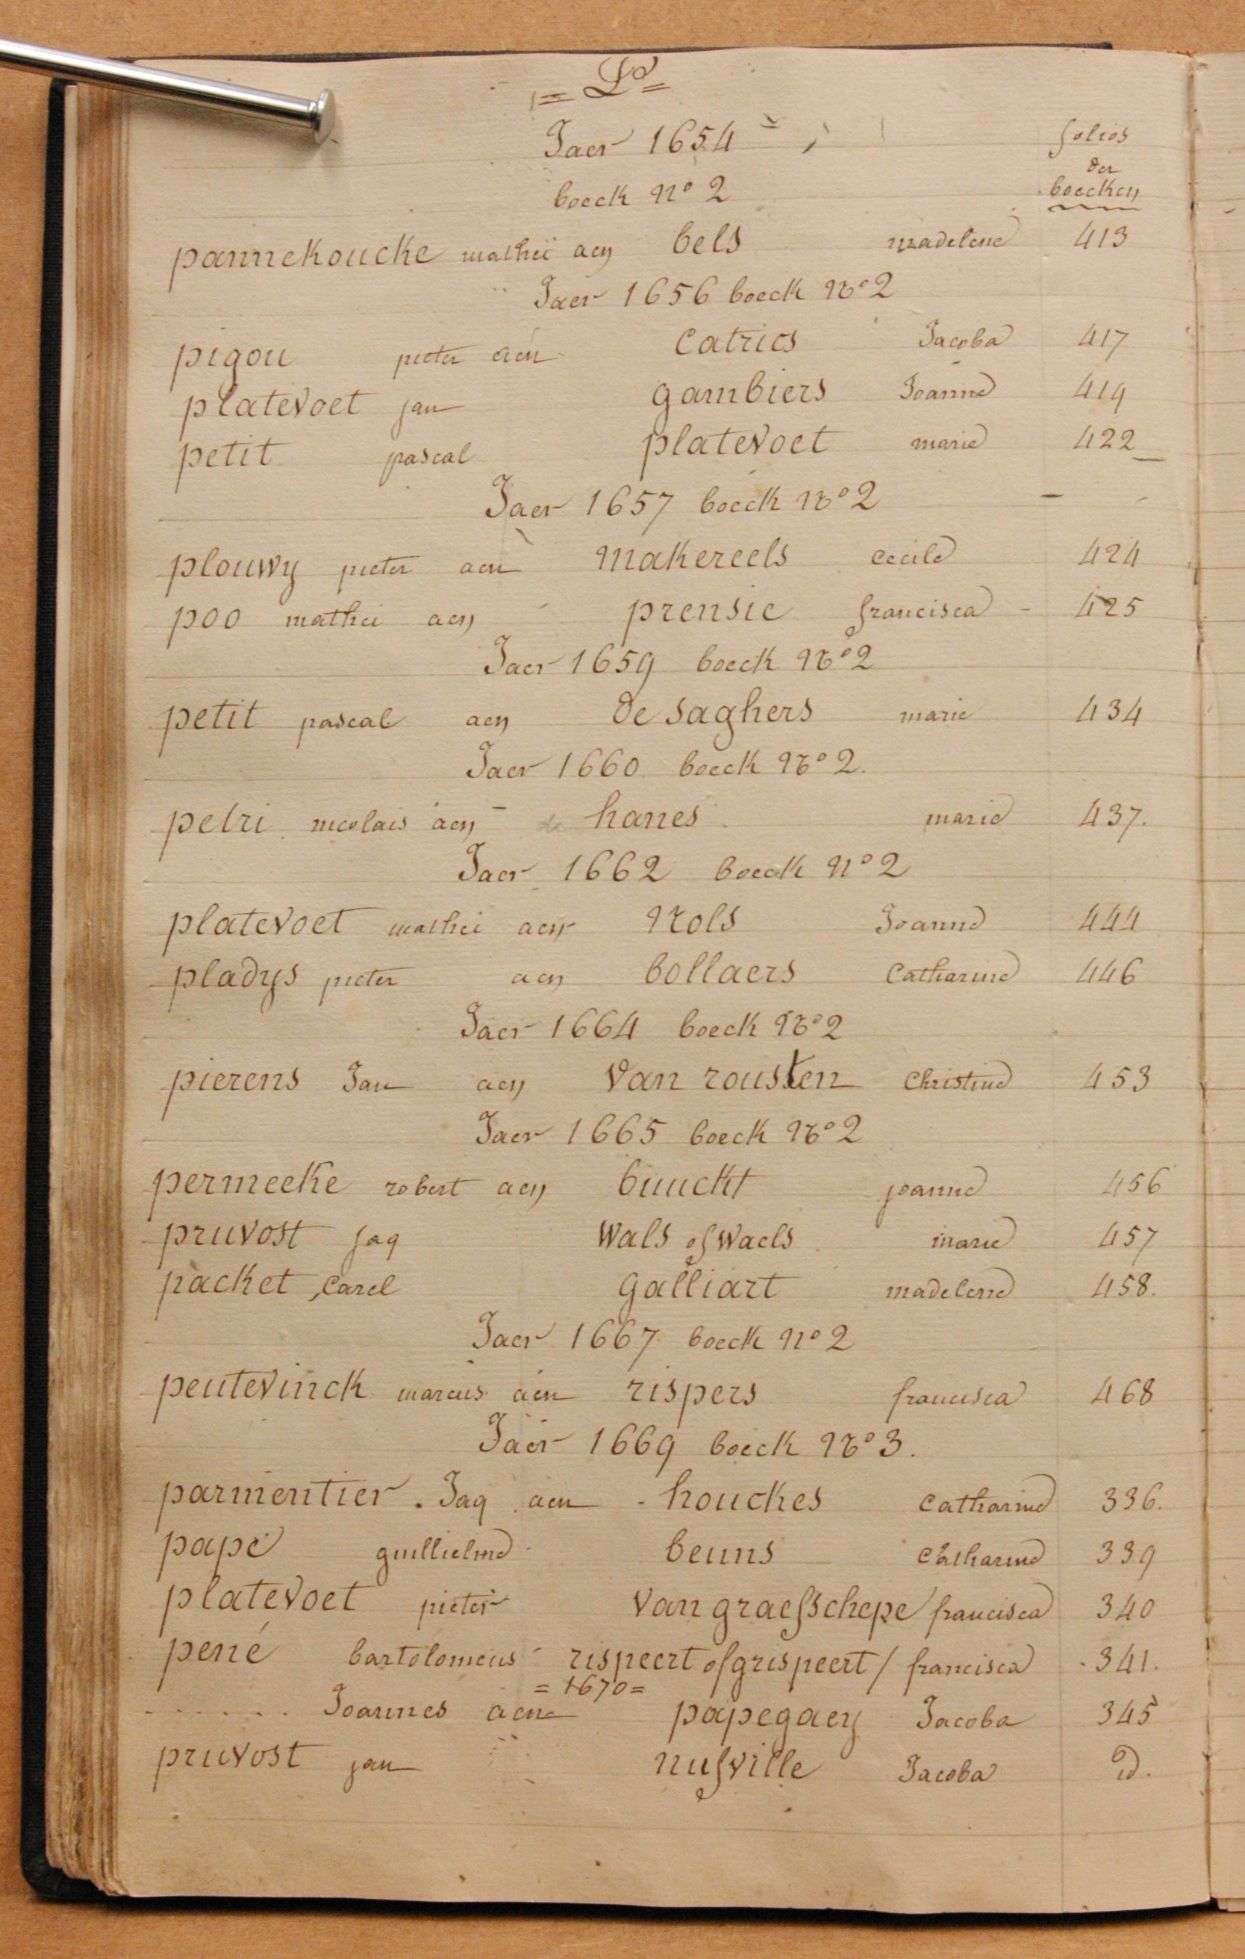 = P =
Jaer 1654 folios
der
boeck No 2 boecken
pannekoucke mathei aen bels madelene 413
Jaer 1656 boeck No 2
pigou pieter aen catrics Jacoba 417
platevoet jan gambiers Joanne 419
petit pascal platevoet marie 422
Jaer 1657 boeck No 2
plouwy pieter aen makereels cecile 424
poo mathei aen prensie francisca 425
Jaer 1659 boeck No 2
petit pascal aen de saghers marie 434
Jaer 1660 boeck No 2.
petri nicolais aen de hanes marie 437.
Jaer 1662 boeck No 2
platevoet mathei aen Nols Joanne 444
pladys pieter aen bollaers Catharine 446
Jaer 1664 boeck No 2
pierens Jan aen Van rousten Christine 453
Jaer 1665 boeck No 2
permeeke robert aen buuckt joanne 456
pruvost jaq wals of waels marie 457
packet, Carel galliart madelene 458.
Jaer 1667 boeck No 2
peutevinck marcus aen rispers francisca 468
Jaer 1669 boeck No 3.
parmentier. Jaq aen houckes Catharine 336.
pape guillielme beuns Catharine 339
platevoet pieter van graefschepe francisca 340
pené bartolomeus rispeert of grispeert / francisca 341.
= 1670 =
....... Joannes aen papegaey Jacoba 345
pruvost jan nufville Jacoba id.